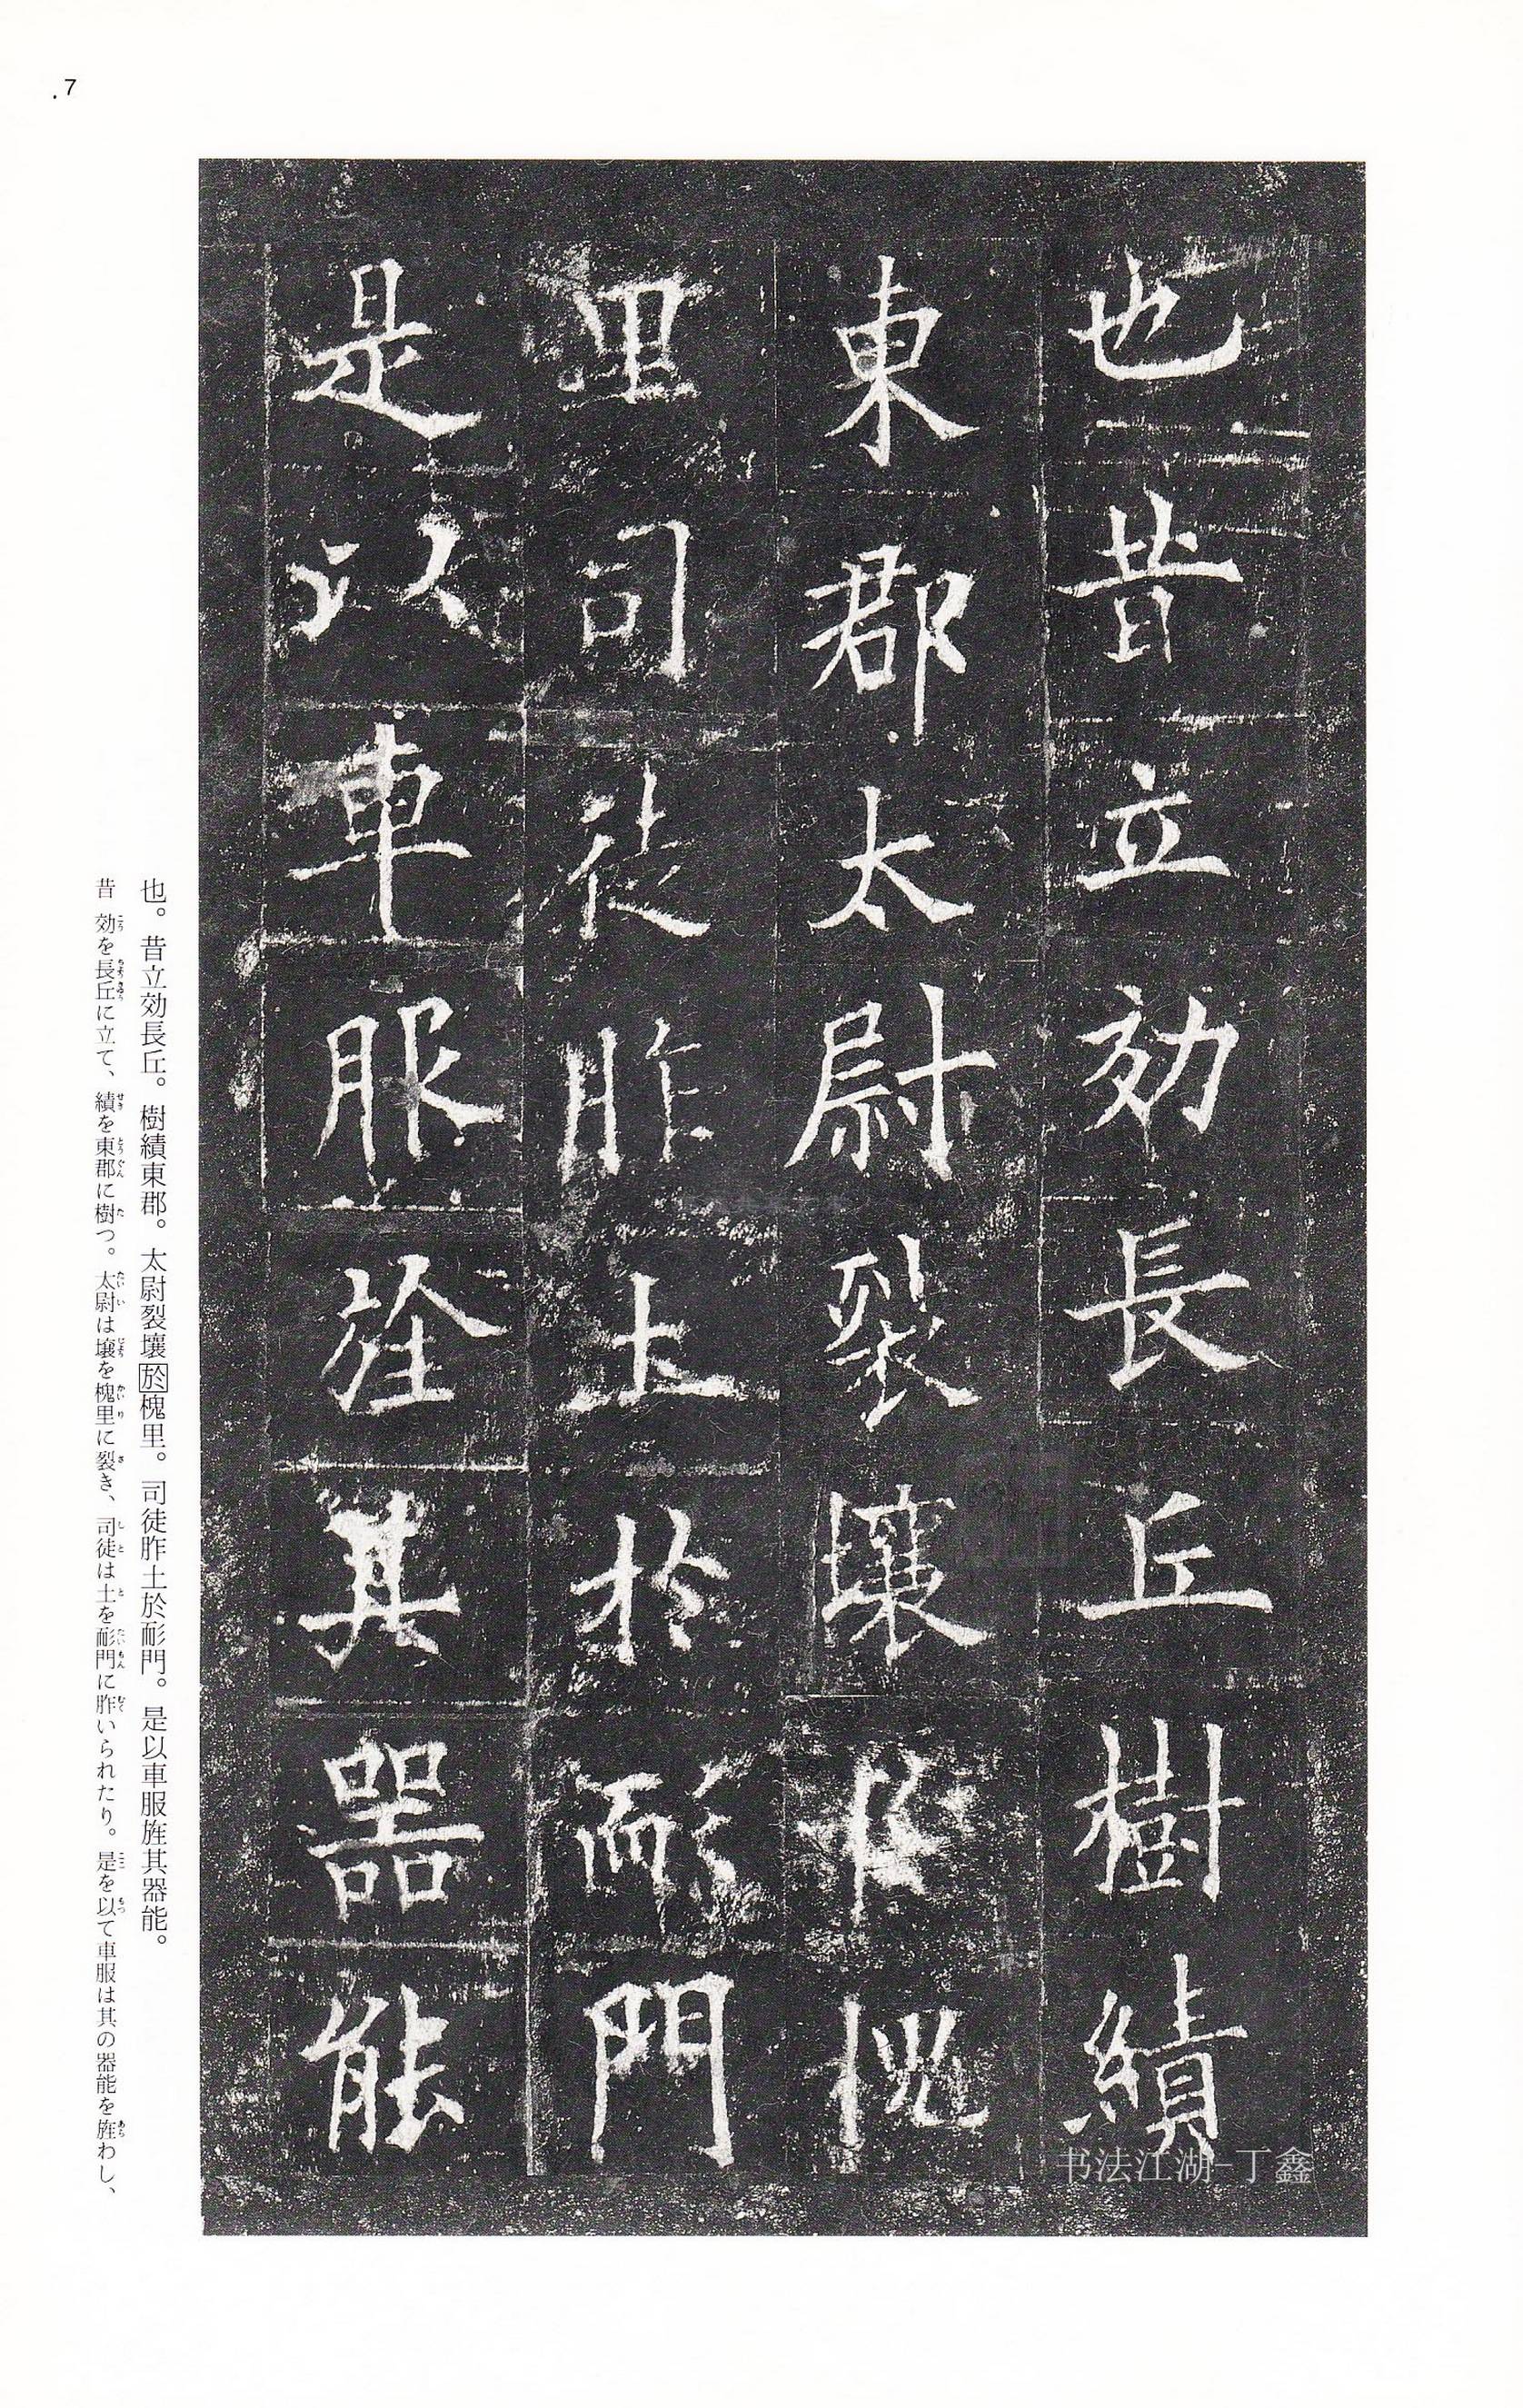 7
也昔立効長丘樹績
東郡太尉裂壤於槐
里司徒胙土於耏門
是以車服旌其器能
也。昔立効長丘。樹績東郡。太尉裂壤於槐里。司徒胙土於耏門。是以車服旌其器能。
昔 効を長丘に立て、績を東郡に樹つ。太尉は壌を槐里に裂き、司徒は土を耏門に胙いられたり。是を以て車服は其の器能を旌わし、
书法江湖-丁鑫